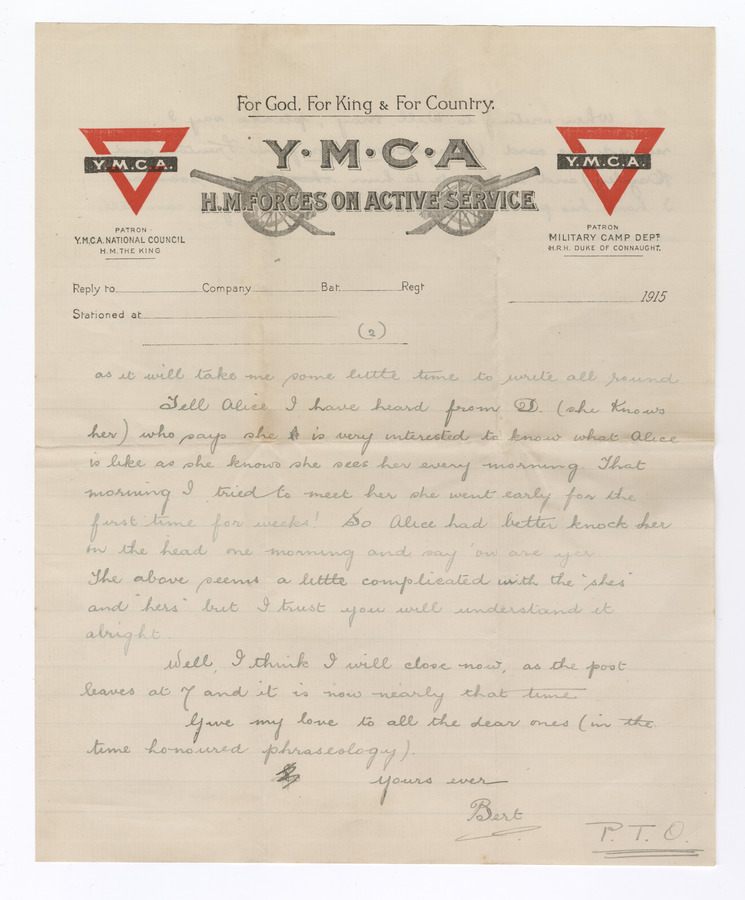 For God, For King & For Country.
Y·M·C·A
Y.M.C.A.
Y.M.C.A.
H.M. FORCES ON ACTIVE SERVICE
PATRON
Y.M.C.A. NATIONAL COUNCIL
H.M. THE KING
PATRON
MILITARY CAMP DEPT.
H.R.H. DUKE OF CONNAUGHT.
Reply to Company Bat. Regt
1915
Stationed at
(2)
as it will take me some little time to write all round
Tell Alice I have heard from D. (she knows
her) who says she is very interested to know what Alice
is like as she knows she sees her every morning. That
morning I tried to meet her she went early for the
first time for weeks! So Alice had better knock her
on the head one morning and say 'ow are yer
The above seems a little complicated with the "shes"
and "hers" but I trust you will understand it
alright.
Well, I think I will close now, as the post
leaves at 7 and it is now nearly that time
Give my love to all the dear ones (in the
time honoured phraseology).
Yours ever
Bert
P.T.O.